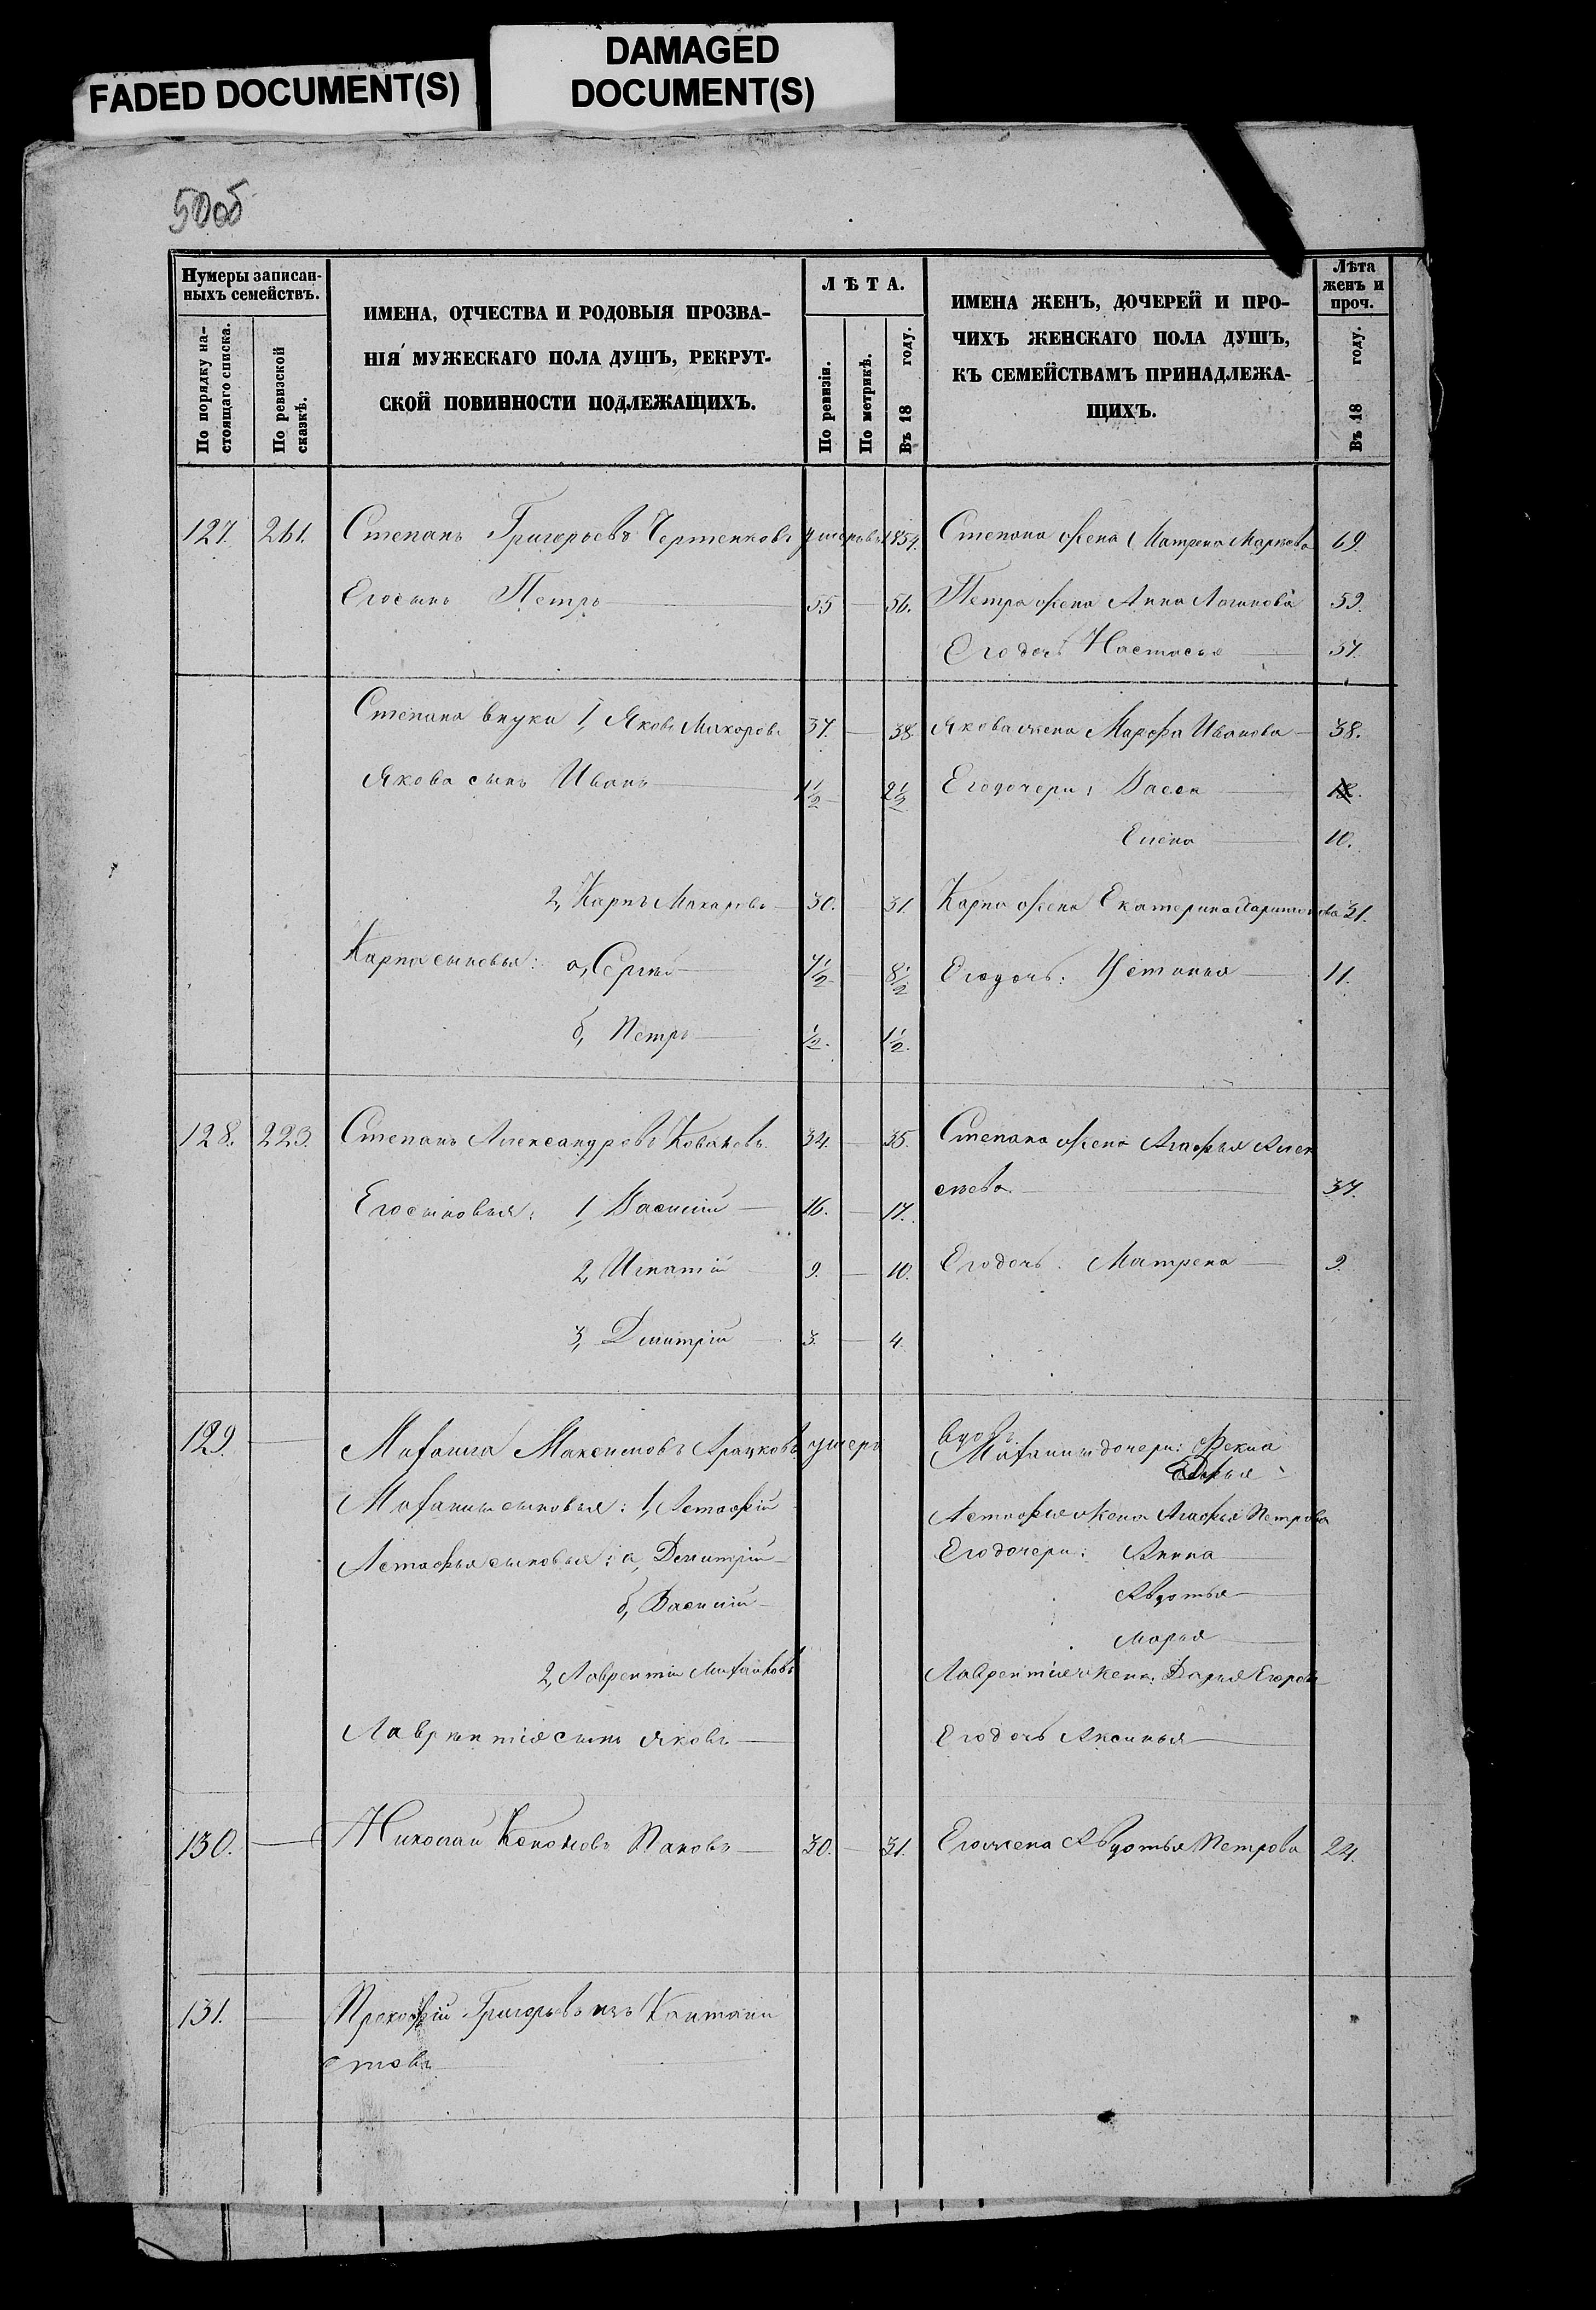 FADED DOCUMENT(S)
DAMAGED
DOCUMENT(S)
50об
Нумеры записан-
ныхъ семействъ.
По порядку на-
стоящаго списка.
По ревизской
сказкѣ.
ИМЕНА, ОТЧЕСТВА И РОДОВЫЯ ПРОЗВА-
НІЯ МУЖЕСКАГО ПОЛА ДУШЪ, РЕКРУТ-
СКОЙ ПОВИННОСТИ ПОДЛЕЖАЩИХЪ.
ЛѢТА.
По ревизіи.
По метрикѣ.
Въ 18 году.
ИМЕНА ЖЕНЪ, ДОЧЕРЕЙ И ПРО-
ЧИХЪ ЖЕНСКАГО ПОЛА ДУШЪ,
КЪ СЕМЕЙСТВАМЪ ПРИНАДЛЕЖА-
ЩИХЪ.
Лѣта
женъ и
проч.
Въ 18 году.
127. 261. Степанъ Григорьевъ Чертенковъ умеръ въ 1854. Степана жена Матрена Маркова 69.
Его сынъ Петръ 55 56. Петра жена Анна Логинова 59.
Его дочь Настасья 37.
Степана внуки 1, Яковъ Макаровъ 37. 38 Якова жена Марфа Иванова 38.
Якова сынъ Иванъ 1½ 2½ Его дочери: Васса 18.
Елена 10.
2, Карпъ Макаровъ 30. 31. Карпа жена Екатерина Харитонова 31.
Карпа сыновья: а, Сергѣй 7½ 8½ Его дочь: Устинья 11.
б, Петръ ½. 1½.
128. 223. Степанъ Александровъ Ковалевъ 34. 35. Степана жена Агафья Алек
сѣева 37.
Его сыновья: 1, Василій 16. 17.
2, Игнатій 9. 10. Его дочь: Матрена 9.
3, Дмитрій 3. 4.
129. Мафанила Максимовъ умеръ
дочери: Фекла
Дарья
сыновья: 1, Астафій Астафья жена Агафья Петрова
Астафья сыновья: а, Дмитрій Его дочери: Анна
б, Василій Авдотья
Марья
2, Лаврентій Лаврентія жена: Дарья Егорова
Лаврентія сынъ Яковъ Его дочь Аксинья
130. Николай Кононовъ Пановъ 30. 31. Его жена Авдотья Петрова 24.
131. Прокофій Григорьевъ изъ Кантони
стовъ